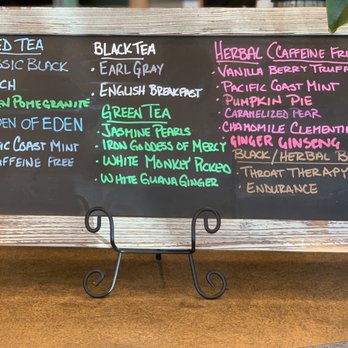 ED TEA
SSIC BLACK
CH
EN POMEGRANITE
DEN OF EDEN
IC COAST MINT
AFFEINE FREE
BLACK TEA
• EARL GRAY
• ENGLISH BREAKFAST
GREEN TEA
• JASMINE PEARLS
• IRON GODDESS OF MERCY
• WHITE MONKEY PICKED
• WHITE GUANA GINGER
HERBAL (CAFFEINE FRE
• VANILLA BERRY TRUFF
• PACIFIC COAST MINT
• PUMPKIN PIE
• CARAMELIZED PEAR
• CHAMOMILE CLEMENTI
• GINGER GINSENG
BLACK/HERBAL B
• THROAT THERAPY
• ENDURANCE